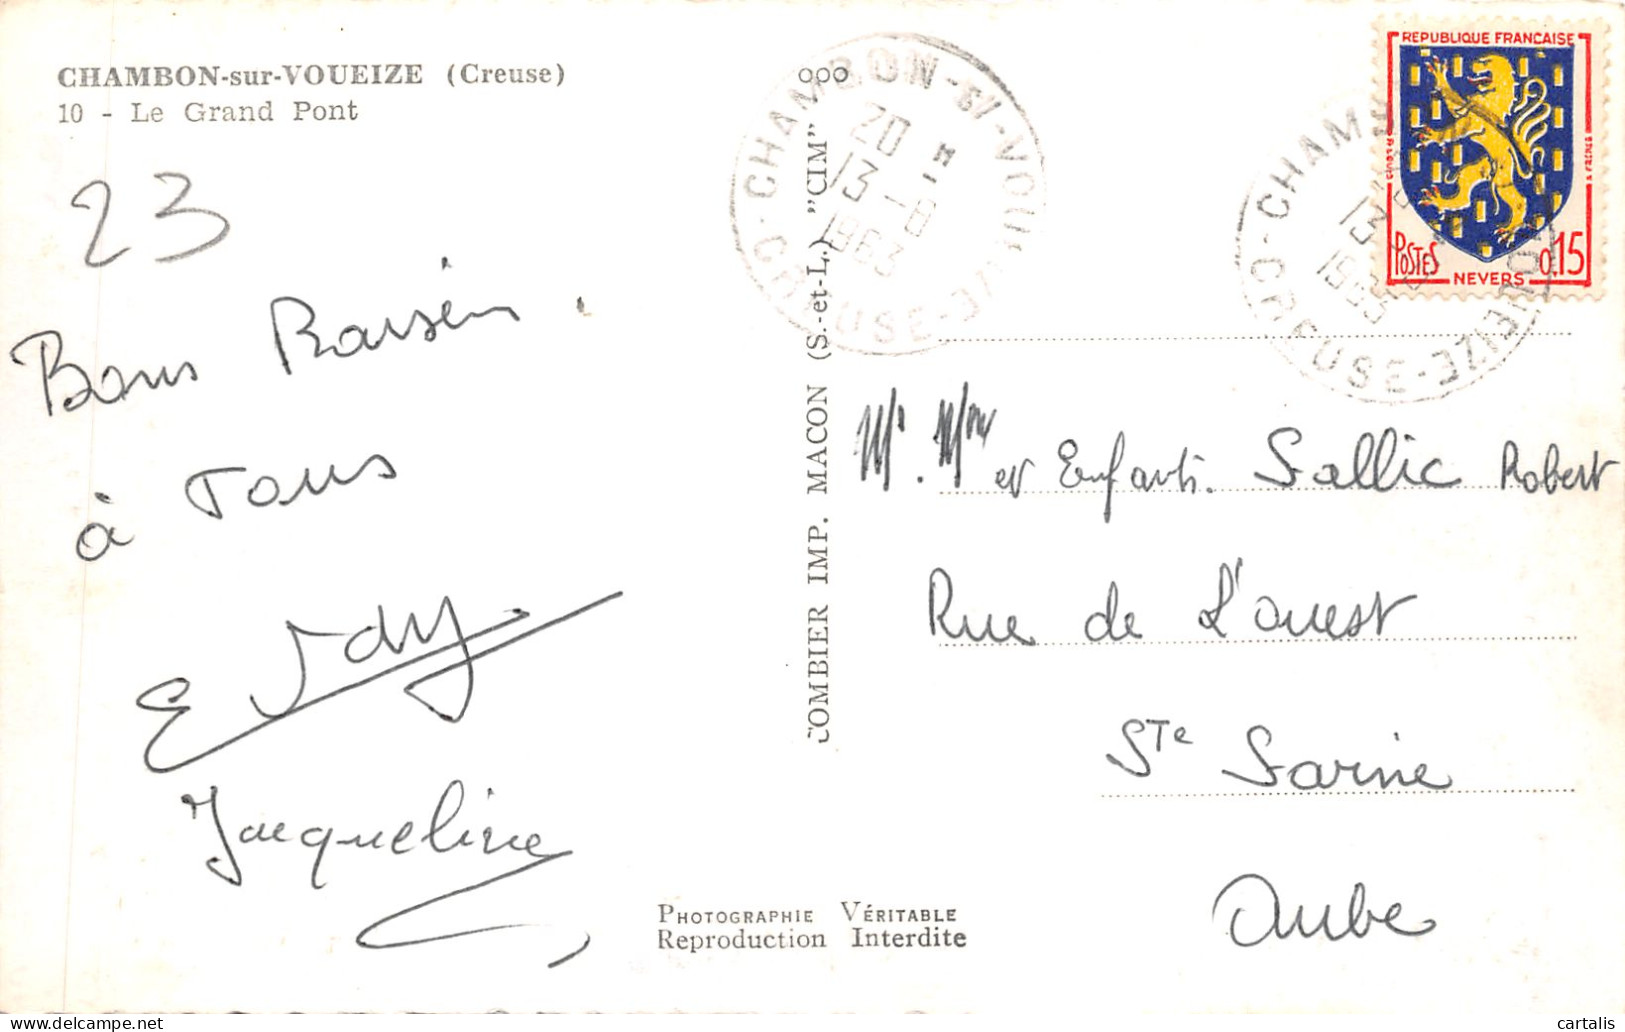 CHAMBON-sur-VOUEIZE (Creuse)
10 - Le Grand Pont
23
Bons Baisers
à Tous
Jacqueline
PHOTOGRAPHIE VÉRITABLE
Reproduction Interdite
COMBIER IMP. MACON (S.-et-L.) "CIM"
CHAMBON-S/-VOUEIZE
20 H
13-8
1963
CREUSE
REPUBLIQUE FRANÇAISE
POSTES
0,15
NEVERS
CHAMBON-S/-VOUEIZE
13-8
1963
CREUSE
Mr. Mme et Enfants. Sallic Robert
Rue de L'ouest
Ste Savine
Aube
cartalis